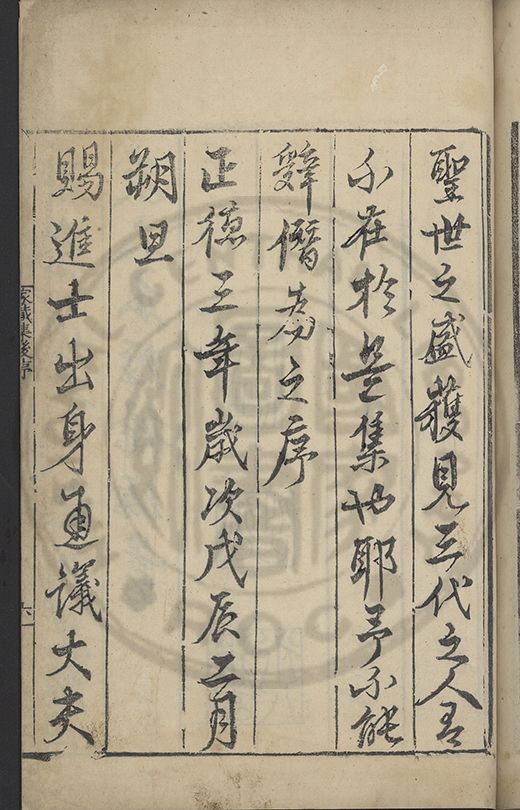 聖世之盛獲見三代之人焉
不在於是集也耶予不能
辭僭為之序
正德三年歲次戊辰二月
朔旦
賜進士出身通議大夫
家藏集後序
六